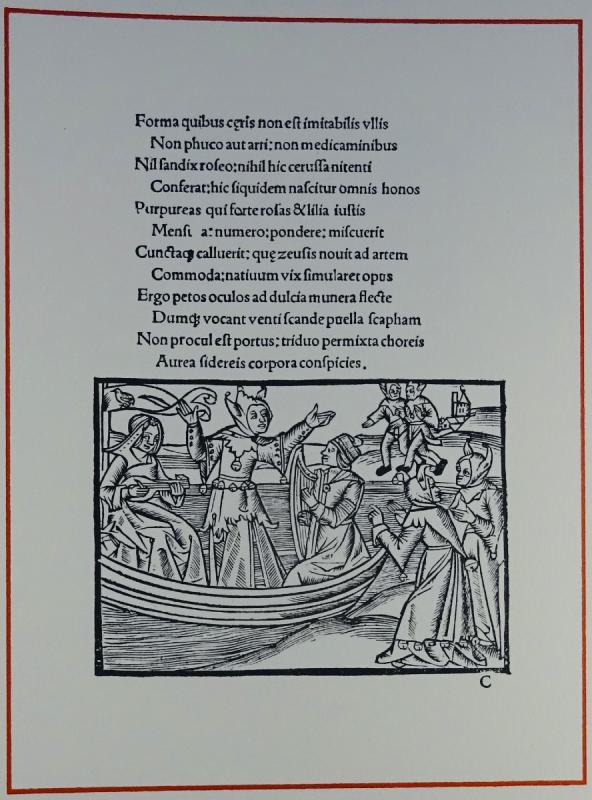 Forma quibus cęris non eſt imitabilis vllis
Non phuco aut arti: non medicaminibus
Nil ſandix roſeo: nihil hic ceruſſa nitenti
Conferat: hic ſiquidem naſcitur omnis honos
Purpureas qui forte roſas & lilia iuſtis
Menſu a: numero: pondere: miſcuerit
Cunctaqꝫ calluerit: quę zeuſis nouit ad artem
Commoda: natiuum vix ſimularet opus
Ergo petos oculos ad dulcia munera flecte
Dumqꝫ vocant venti ſcande puella ſcapham
Non procul eſt portus: triduo permixta choreis
Aurea ſidereis corpora conſpicies.
C